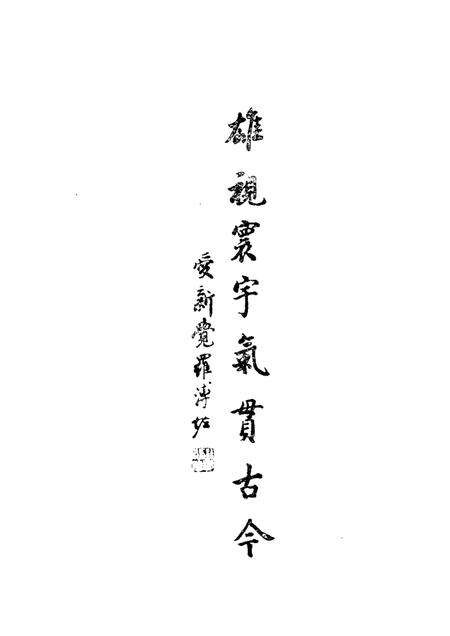 雄視寰宇氣貫古今
愛新覺羅溥